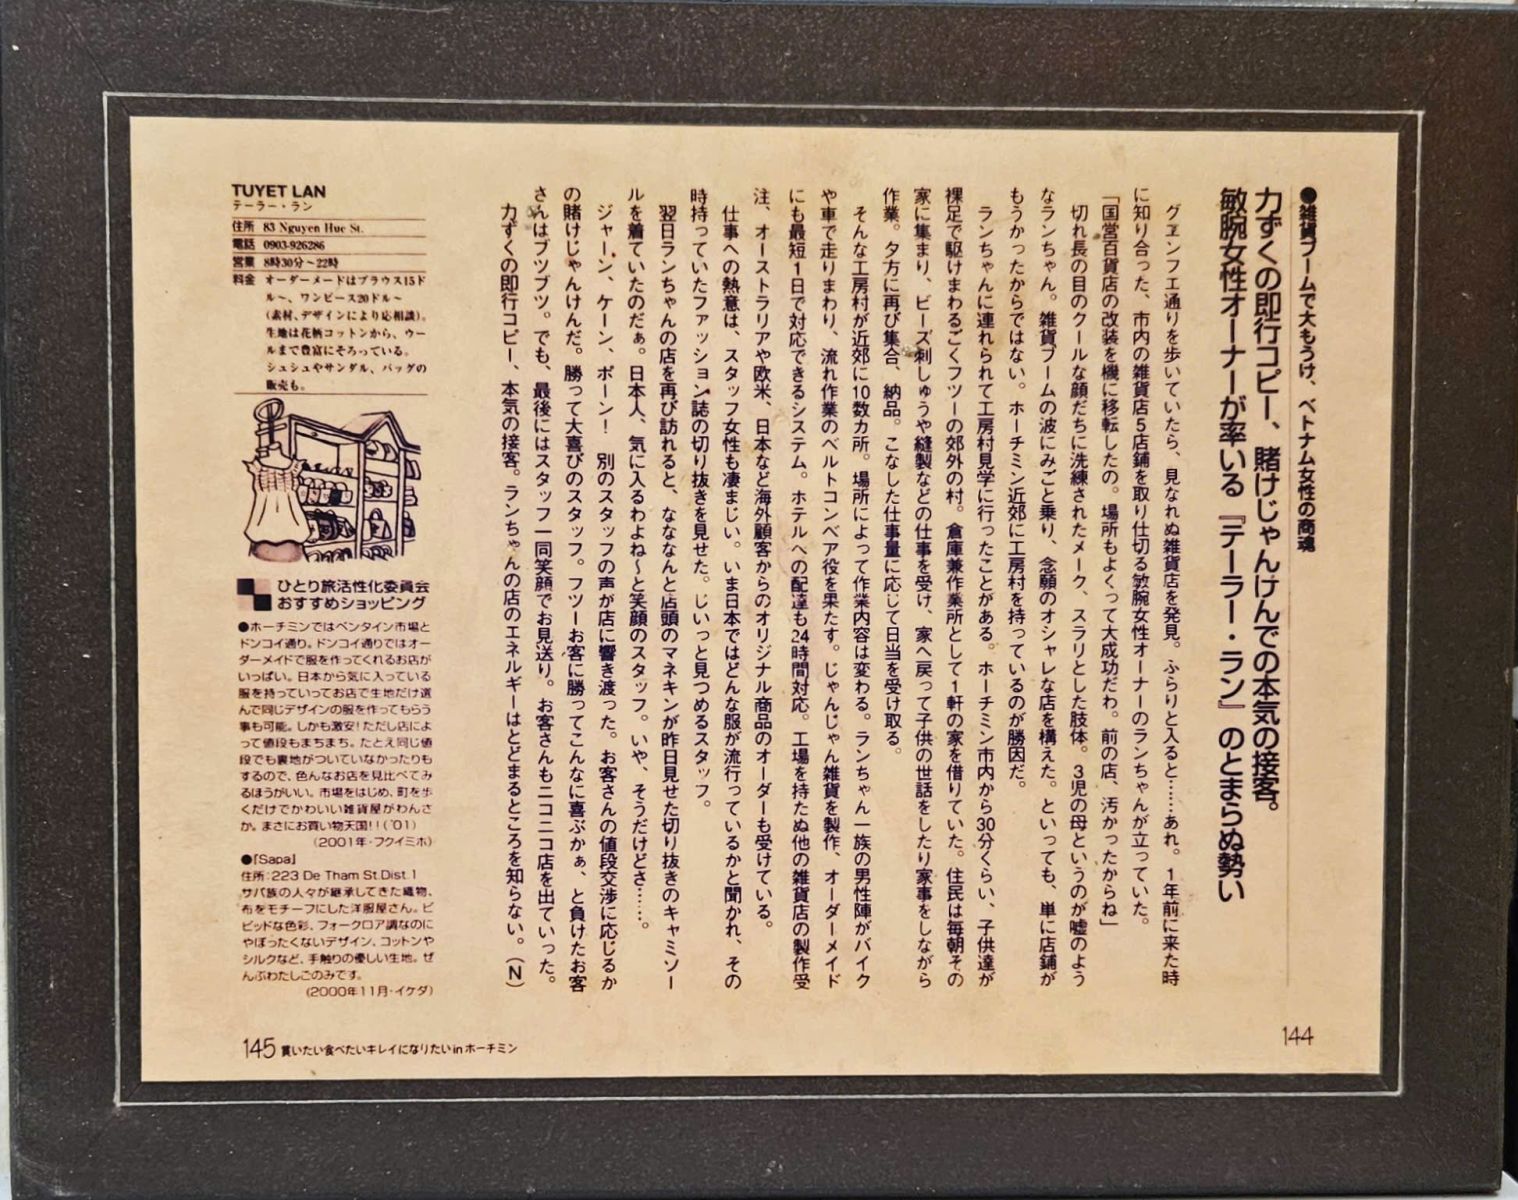 ●雑貨ブームで大もうけ、ベトナム女性の商魂
力ずくの即行コピー、賭けじゃんけんでの本気の接客。
敏腕女性オーナーが率いる『テーラー・ラン』のとまらぬ勢い
グエンフエ通りを歩いていたら、見なれぬ雑貨店を発見。ふらりと入ると……あれ。1年前に来た時
に知り合った、市内の雑貨店5店舗を取り仕切る敏腕女性オーナーのランちゃんが立っていた。
「国営百貨店の改装を機に移転したの。場所もよくって大成功だわ。前の店、汚かったからね」
切れ長の目のクールな顔だちに洗練されたメーク、スラリとした肢体。3児の母というのが嘘のよう
なランちゃん。雑貨ブームの波にみごと乗り、念願のオシャレな店を構えた。といっても、単に店舗が
もうかったからではない。ホーチミン近郊に工房村を持っているのが勝因だ。
ランちゃんに連れられて工房村見学に行ったことがある。ホーチミン市内から30分くらい、子供達が
裸足で駆けまわるごくフツーの郊外の村。倉庫兼作業所として1軒の家を借りていた。住民は毎朝その
家に集まり、ビーズ刺しゅうや縫製などの仕事を受け、家へ戻って子供の世話をしたり家事をしながら
作業。夕方に再び集合、納品。こなした仕事量に応じて日当を受け取る。
そんな工房村が近郊に10数カ所。場所によって作業内容は変わる。ランちゃん一族の男性陣がバイク
や車で走りまわり、流れ作業のベルトコンベア役を果たす。じゃんじゃん雑貨を製作、オーダーメイド
にも最短1日で対応できるシステム。ホテルへの配達も24時間対応。工場を持たぬ他の雑貨店の製作受
注、オーストラリアや欧米、日本など海外顧客からのオリジナル商品のオーダーも受けている。
仕事への熱意は、スタッフ女性も凄まじい。いま日本ではどんな服が流行っているかと聞かれ、その
時持っていたファッション誌の切り抜きを見せた。じいっと見つめるスタッフ。
翌日ランちゃんの店を再び訪れると、なななんと店頭のマネキンが昨日見せた切り抜きのキャミソー
ルを着ていたのだぁ。日本人、気に入るわよね〜と笑顔のスタッフ。いや、そうだけどさ……。
ジャーン、ケーン、ポーン！ 別のスタッフの声が店に響き渡った。お客さんの値段交渉に応じるか
の賭けじゃんけんだ。勝って大喜びのスタッフ。フツーお客に勝ってこんなに喜ぶかぁ、と負けたお客
さんはブツブツ。でも、最後にはスタッフ一同笑顔でお見送り。お客さんもニコニコ店を出ていった。
力ずくの即行コピー、本気の接客。ランちゃんの店のエネルギーはとどまるところを知らない。（N）
144
TUYET LAN
テーラー・ラン
住所 83 Nguyen Hue St.
電話 0903-926286
営業 8時30分〜22時
料金 オーダーメードはブラウス15ド
ル〜、ワンピース20ドル〜
(素材、デザインにより応相談)。
生地は花柄コットンから、ウー
ルまで豊富にそろっている。
シュシュやサンダル、バッグの
販売も。
ひとり旅活性化委員会
おすすめショッピング
●ホーチミンではベンタイン市場と
ドンコイ通り。ドンコイ通りではオー
ダーメイドで服を作ってくれるお店が
いっぱい。日本から気に入っている
服を持っていってお店で生地だけ選
んで同じデザインの服を作ってもらう
事も可能。しかも激安！ただし店によ
って値段もまちまち。たとえ同じ値
段でも裏地がついていなかったりも
するので、色んなお店を見比べてみ
るほうがいい。市場をはじめ、町を歩
くだけでかわいい雑貨屋がわんさ
か。まさにお買い物天国！！('01)
(2001年・フクイミホ)
●『Sapa』
住所：223 De Tham St.Dist.1
サパ族の人々が継承してきた織物、
布をモチーフにした洋服屋さん。ビ
ビッドな色彩、フォークロア調なのに
やぼったくないデザイン、コットンや
シルクなど、手触りの優しい生地。ぜ
んぶわたしごのみです。
(2000年11月・イケダ)
145 買いたい食べたいキレイになりたい in ホーチミン